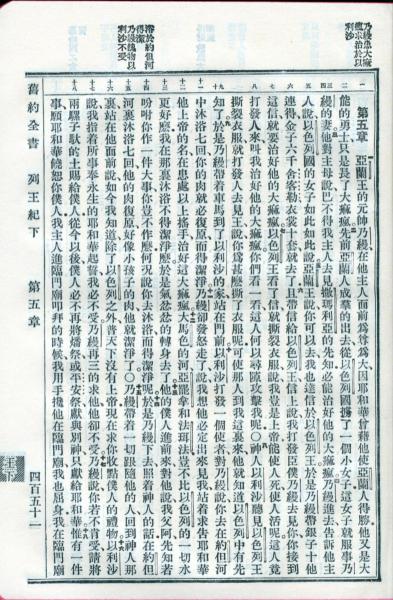 乃縵患大痲
瘋求治於以
利沙
浴於約但河
得潔
乃縵餽物以
利沙不受
第五章 亞蘭王的元帥乃縵在他主人面前為尊為大因耶和華曾藉他使亞蘭人得勝他又是大
能的勇士只是長了大痲瘋先前亞蘭人成羣的出去從以色列國擄了一個小女子這女子就服事乃
縵的妻他對主母說巴不得我主人去見撒瑪利亞的先知必能治好他的大痲瘋乃縵進去告訴他主
人說以色列國的女子如此如此說亞蘭王說你可以去我也達信於以色列王於是乃縵帶銀子十他
連得金子六千舍客勒衣裳十套就去了且帶信給以色列王信上說我打發臣僕乃縵去見你你接到
這信就要治好他的大痲瘋以色列王看了信就撕裂衣服說我豈是上帝能使人死使人活呢這人竟
打發人來叫我治好他的大痲瘋你們看一看這人何以尋隙攻擊我呢○神人以利沙聽見以色列王
撕裂衣服就打發人去見王說你為甚麼撕了衣服呢可使那人到我這裏來他就知道以色列中有先
知了於是乃縵帶着車馬到了以利沙的家站在門前以利沙打發一個使者對乃縵說你去在約但河
中沐浴七回你的肉就必復原而得潔淨乃縵卻發怒走了說我想他必定出來見我站着求告耶和華
他上帝的名在患處以上搖手治好這大痲瘋大馬色的河亞罷拿和法珥法豈不比以色列的一切水
更好麼我在那裏沐浴不得潔淨麼於是氣忿忿的轉身去了他的僕人進前來對他說我父阿先知若
吩咐你作一件大事你豈不作麼何況說你去沐浴而得潔淨呢於是乃縵下去照着神人的話在約但
河裏沐浴七回他的肉復原好像小孩子的肉他就潔淨了○乃縵帶着一切跟隨他的人回到神人那
裏站在他面前說如今我知道除了以色列之外普天下沒有上帝現在求你收點僕人的禮物以利沙
說我指着所事奉永生的耶和華起誓我必不受乃縵再三的求他他卻不受乃縵說你若不肯受請將
兩騾子馱的土賜給僕人從今以後僕人必不再將燔祭或平安祭獻與別神只獻給耶和華惟有一件
事願耶和華饒恕你僕人我主人進臨門廟叩拜的時候我用手攙他在臨門廟我也屈身我在臨門廟
舊約全書 列王紀下 第五章 四百五十一